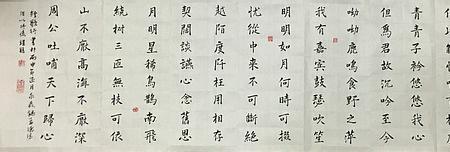 青青子衿悠悠我心
但為君故沉吟至今
呦呦鹿鳴食野之苹
我有嘉賓鼓瑟吹笙
明明如月何時可掇
憂從中來不可斷絕
越陌度阡枉用相存
契闊談讌心念舊恩
月明星稀烏鵲南飛
繞樹三匝無枝可依
山不厭高海不厭深
周公吐哺天下歸心